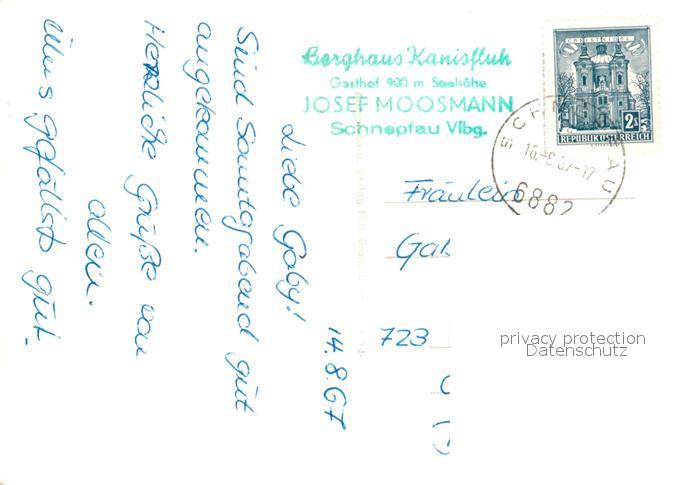 Berghaus Kanisfluh
Gasthof 900 m Seehöhe
JOSEF MOOSMANN
Schnepfau Vlbg.
CHRISTKINDL
2S
REPUBLIK ÖSTERREICH
16.-8.67-17
6882
14.8.67
Liebe Gaby!
Sind Sonntagabend gut
angekommen.
Herzliche Grüße von
allen.
Uns gefällts gut.
Fräulein
Gab
723
privacy protection
Datenschutz